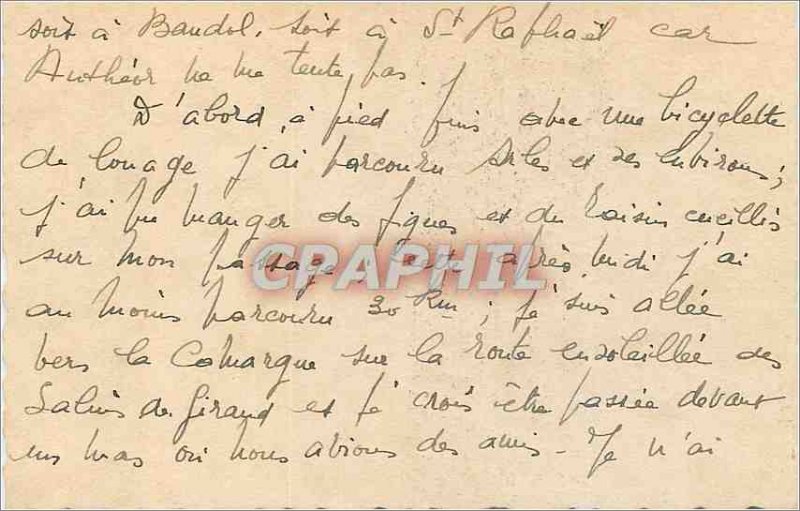 soit à Bandol, soit à St Raphaël car
Anthéor ne me tente pas.
D'abord à pied puis avec une bicyclette
de louage j'ai parcouru Arles et ses environs ;
j'ai pu manger des figues et du raisin cueillis
sur mon passage ; cette après midi j'ai
au moins parcouru 30 Km ; je suis allée
vers la Camargue sur la route ensoleillée des
Salins de Giraud et je crois être passée devant
un mas où nous avions des amis - Je n'ai
CPAPHIL